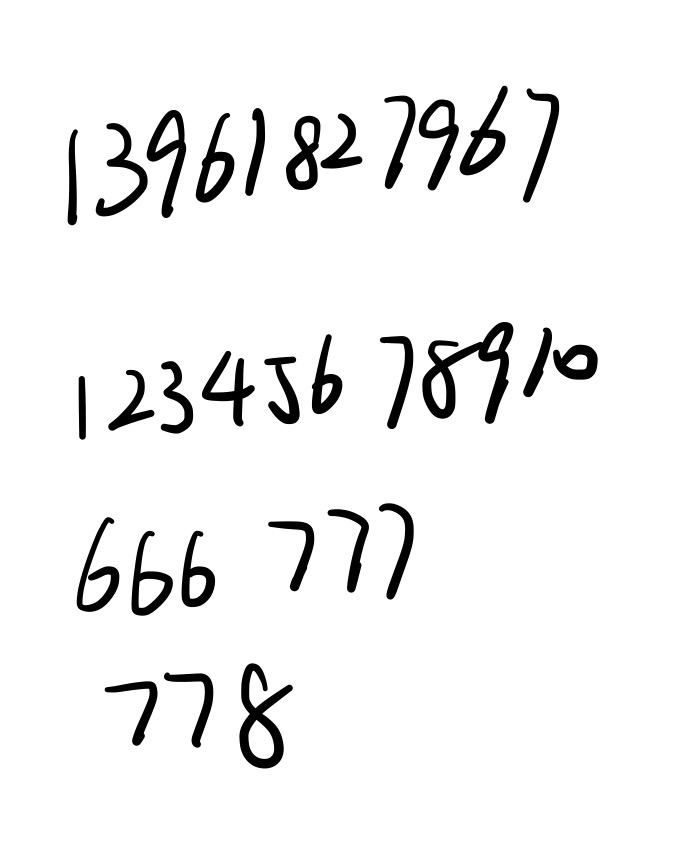 13961827967
12345678910
666 777
778